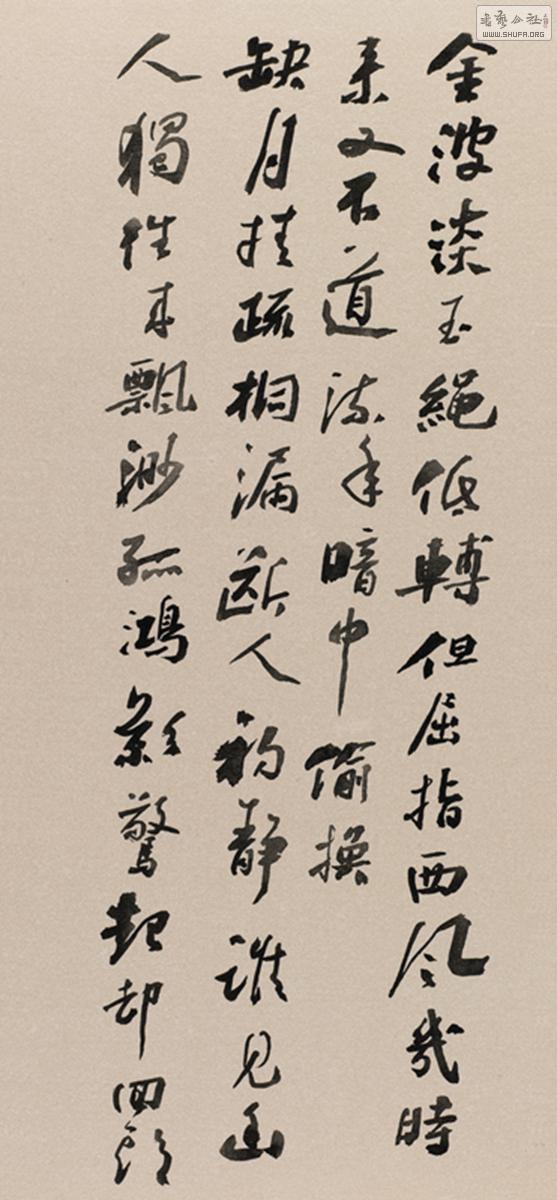 金波淡玉繩低轉但屈指西风幾時
来又不道流年暗中偷換
缺月挂疏桐漏断人初静誰见幽
人獨往来飄渺孤鴻影驚起却回頭
書藝公社
WWW.SHUFA.ORG